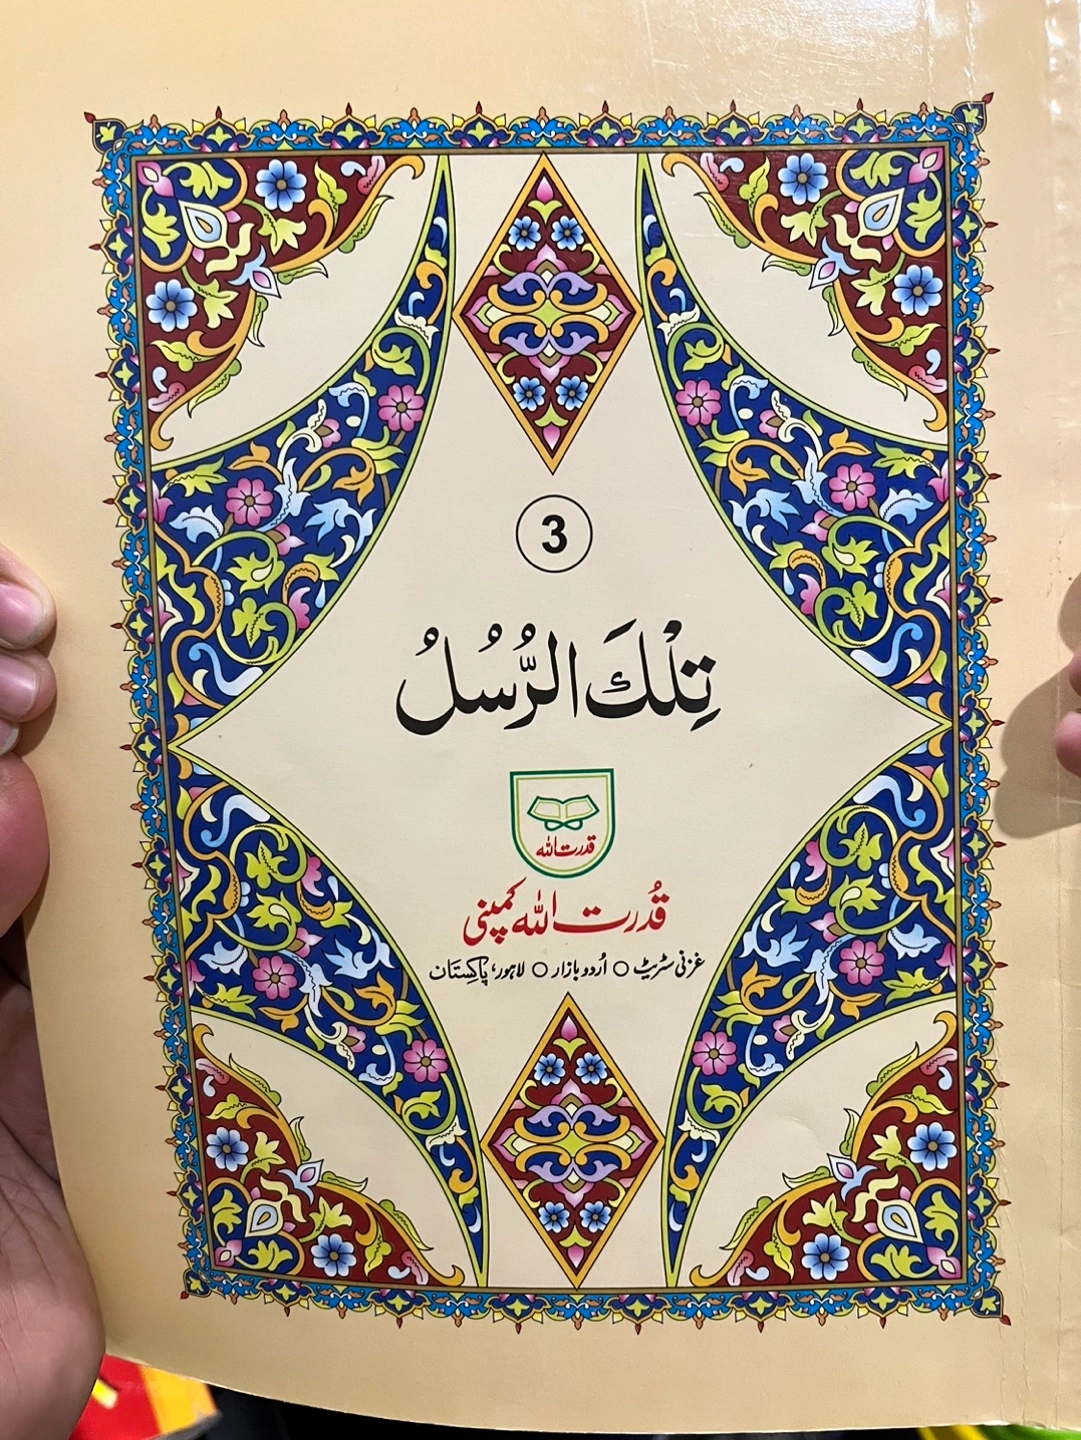 3
تِلْكَ الرُّسُلُ
قدرت اللہ
قُدرت اللہ کمپنی
غزنی سٹریٹ ○ اُردو بازار ○ لاہور، پاکِستَان